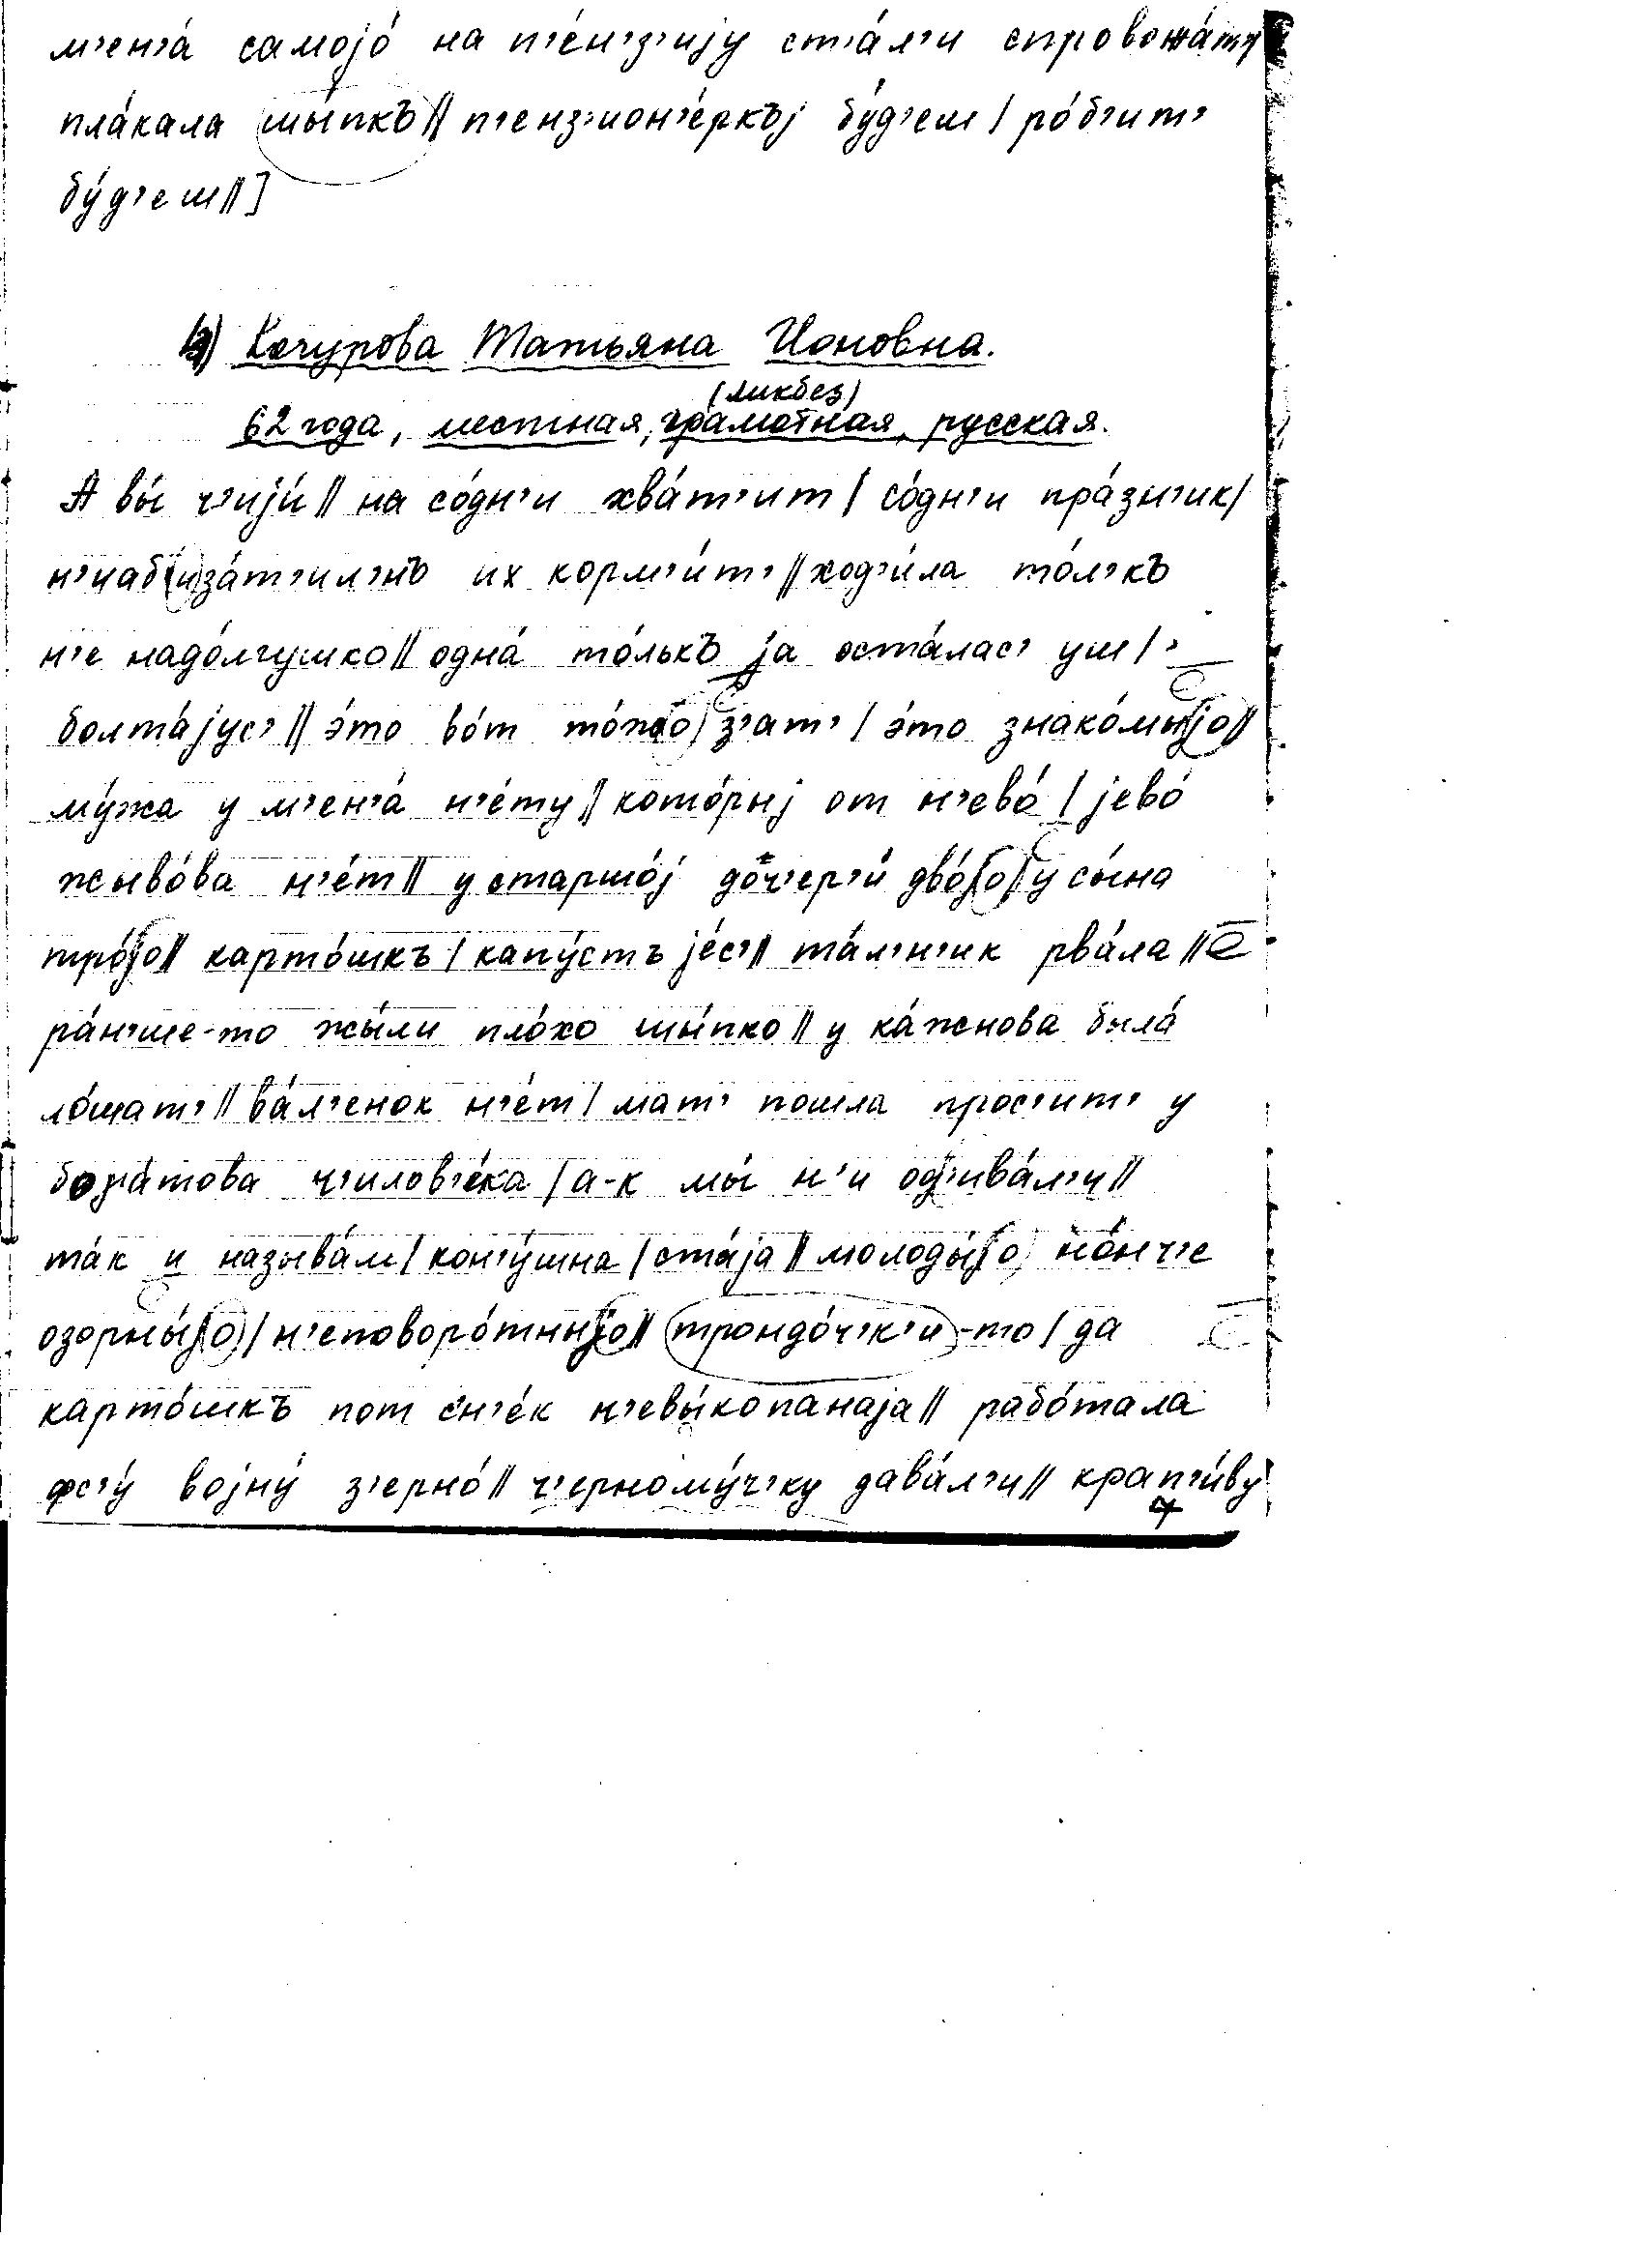 м’ен’а́ самоjо́ на п’е́н’з’иjу ст’а́л’и спровожа́т’
пла́кала шы́пкъ || п’енз’ион’е́ркъj бу́д’еш | ро́б’ит’
бу́д’еш || ]
Кочурова Татьяна Ионовна.
(ликбез)
62 года, местная, грамотная, русская.
А вы́ ч’иjи́ || на со́дн’и хва́т’ит | со́дн’и пра́зн’ик |
н’иабиза́т’ил’нъ их корм’и́т’ || ход’и́ла то́л’къ
н’е надо́лгушко || одна́ то́лькъ jа оста́лас’ уш |
болта́jус’ || э́то во́т то́жо з’ат’ | э́то знако́мыjо ||
му́жа у м’ен’а́ н’е́ту || кото́рыj от н’ево́ | jево́
жыво́ва н’е́т || у старшо́j до́ч’ер’и дво́jо | у сы́на
тро́jо || карто́шкъ | капу́стъ jе́с’ || та́л’н’ик рва́ла ||
ра́н’ше-то жы́ли пло́хо шы́пко || у ка́жнова была́
ло́шат’ || ва́л’енок н’е́т | мат’ пошла прос’ит’ у
бога́това ч’илов’е́ка | а-к мы́ н’и од’ива́л’и ||
та́к и называ́м | кон’у́шна | ста́jа || молоды́jо но́нч’е
озорны́jо | н’еповоро́тныjо || трондо́ч’к’и-то | да
карто́шкъ пот с’н’е́к н’евы́копанаjа || рабо́тала
фс’у́ воjну́ з’ерно́ || ч’ерному́ч’ку дава́л’и || крап’и́ву